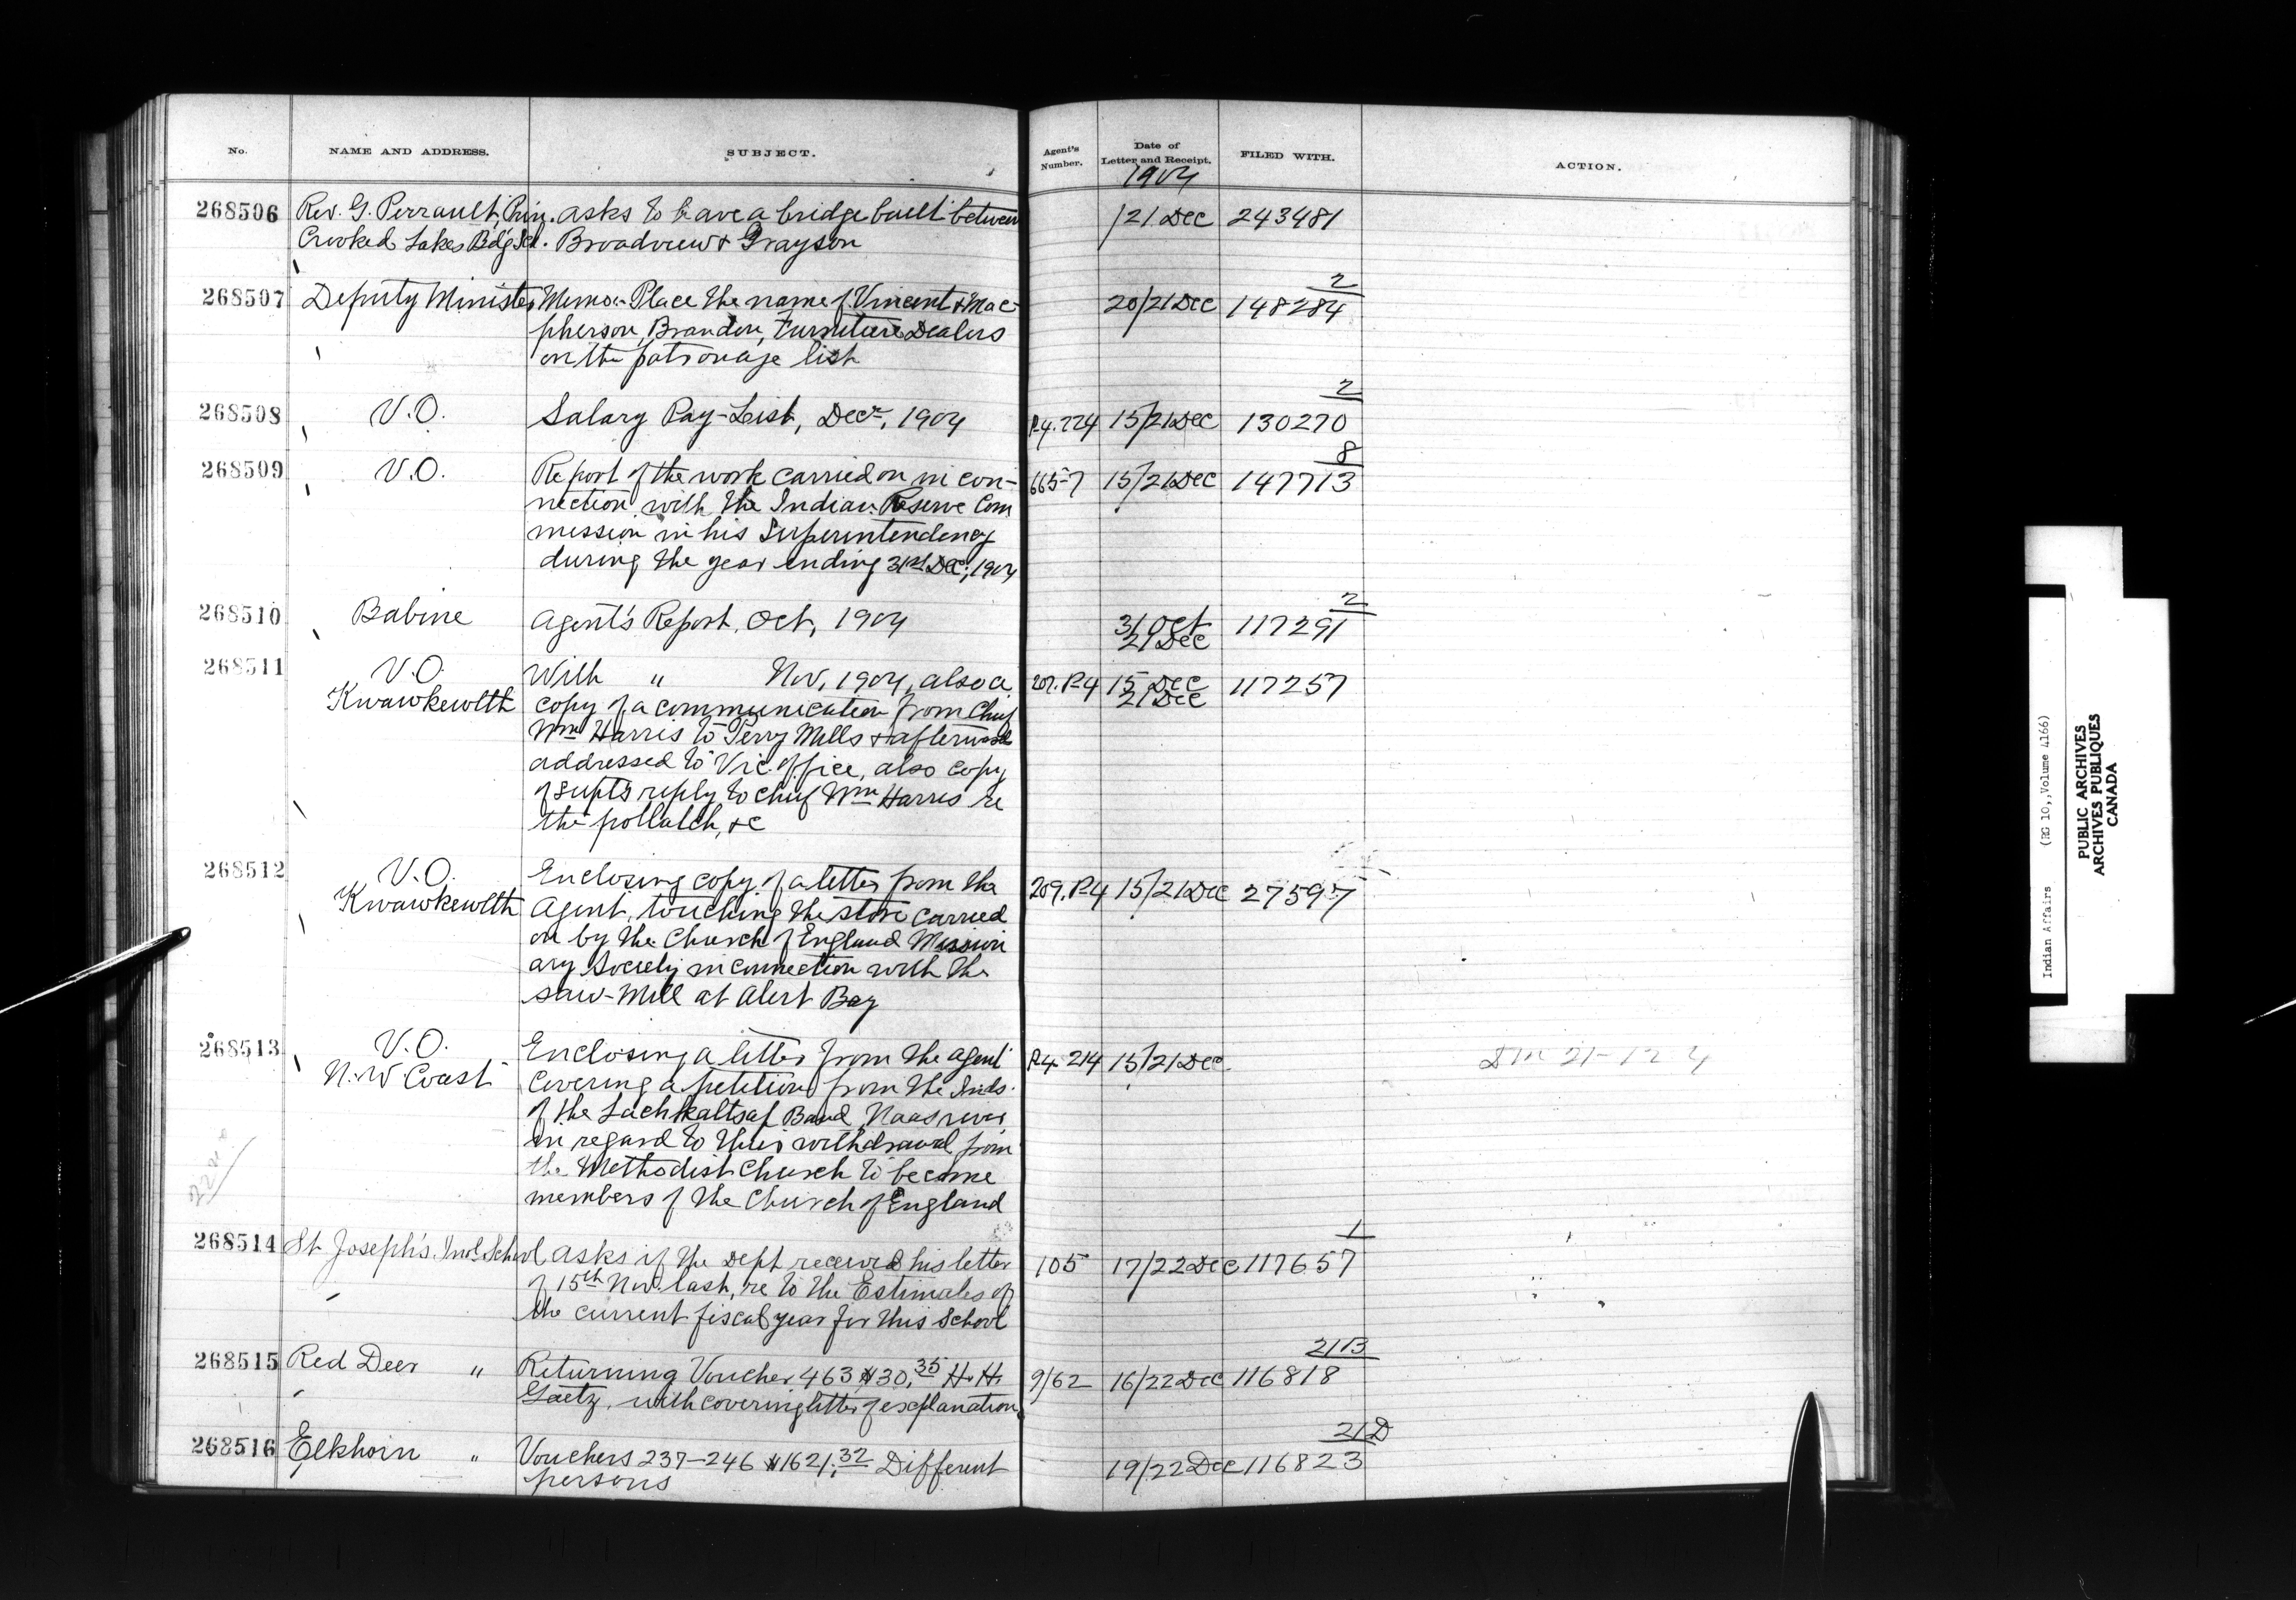 No. NAME AND ADDRESS. SUBJECT. Agent's Number. Date of Letter and Receipt. FILED WITH. ACTION.
1904
268506 Rev. G. Perrault, Prin. asks to have a bridge built between /21 Dec 243481
Crooked Lakes Bd'g Scl. Broadview & Grayson
2
268507 Deputy Minister Memo:- Place the name of Vincent & Mac- 20/21 Dec 148284
pherson, Brandon, Furniture Dealers
on the patronage list
2
268508 V.O. Salary Pay-List, Decr, 1904 P-4. 224 15/21 Dec 130270
8
268509 V.O. Report of the work carried on in con- 665-7 15/21 Dec 147713
nection with the Indian Reserve Com
mission in his Superintendency
during the year ending 31st Dec., 1904
2
268510 Babine Agent's Report, Oct, 1904 31 Oct 117291
21 Dec
268511 V.O. With " Nov, 1904, also a 207. P-4 15 Dec 117257
Kwawkewlth copy of a communication from Chief 21 Dec
Wm Harris to Perry Mills & afterward
addressed to Vic. office, also copy
of Supt's reply to Chief Wm Harris re
the pollatch, &c
268512 V.O. Enclosing copy of a letter from the 209. P-4 15/21 Dec 27597
Kwawkewlth Agent, touching the store carried
on by the Church of England Mission
ary Society in connection with the
saw-Mill at Alert Bay
268513 V.O. Enclosing a letter from the agent P-4 214 15/21 Dec
N.W. Coast covering a petition from the Inds.
of the Lachkaltsap Band, Naas river
in regard to their withdrawal from
the Methodist Church to become
members of the Church of England
1
268514 St Joseph's Indl School asks if the Dept received his letter 105 17/22 Dec 117657
of 15th Nov. last, re to the Estimates of
the current fiscal year for this School
21B
268515 Red Deer " Returning Voucher 463 $30.35 H. H. 9/62 16/22 Dec 116818
Gaetz, with covering letter of explanation
21D
268516 Elkhorn " Vouchers 237-246 $1621.32 Different 19/22 Dec 116823
persons
Indian Affairs (RG 10, Volume 4166)
PUBLIC ARCHIVES
ARCHIVES PUBLIQUES
CANADA